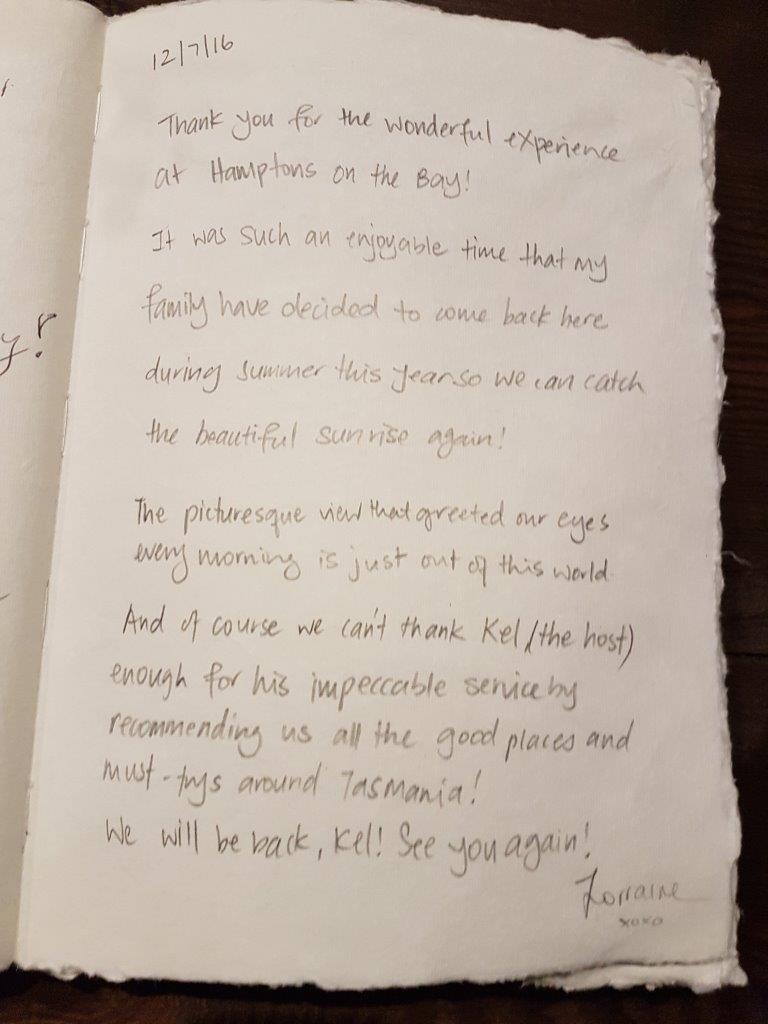 12/7/16
Thank you for the wonderful experience
at Hamptons on the Bay!
It was such an enjoyable time that my
family have decided to come back here
during summer this year so we can catch
the beautiful sunrise again!
The picturesque view that greeted our eyes
every morning is just out of this world
And of course we can't thank Kel (the host)
enough for his impeccable service by
recommending us all the good places and
must-trys around Tasmania!
We will be back, Kel! See you again!
Lorraine
xoxo